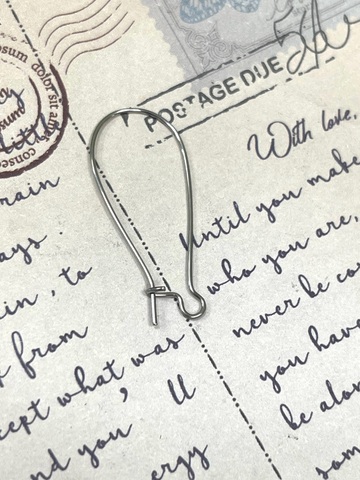 POSTAGE DUE
psum
dolor sit am
psum
conse
little
rain
ays.
in, to
from
cept what was
nd you
ll
ergy
With love,
Until you make
who you are,
never be co
you have
be alo
som